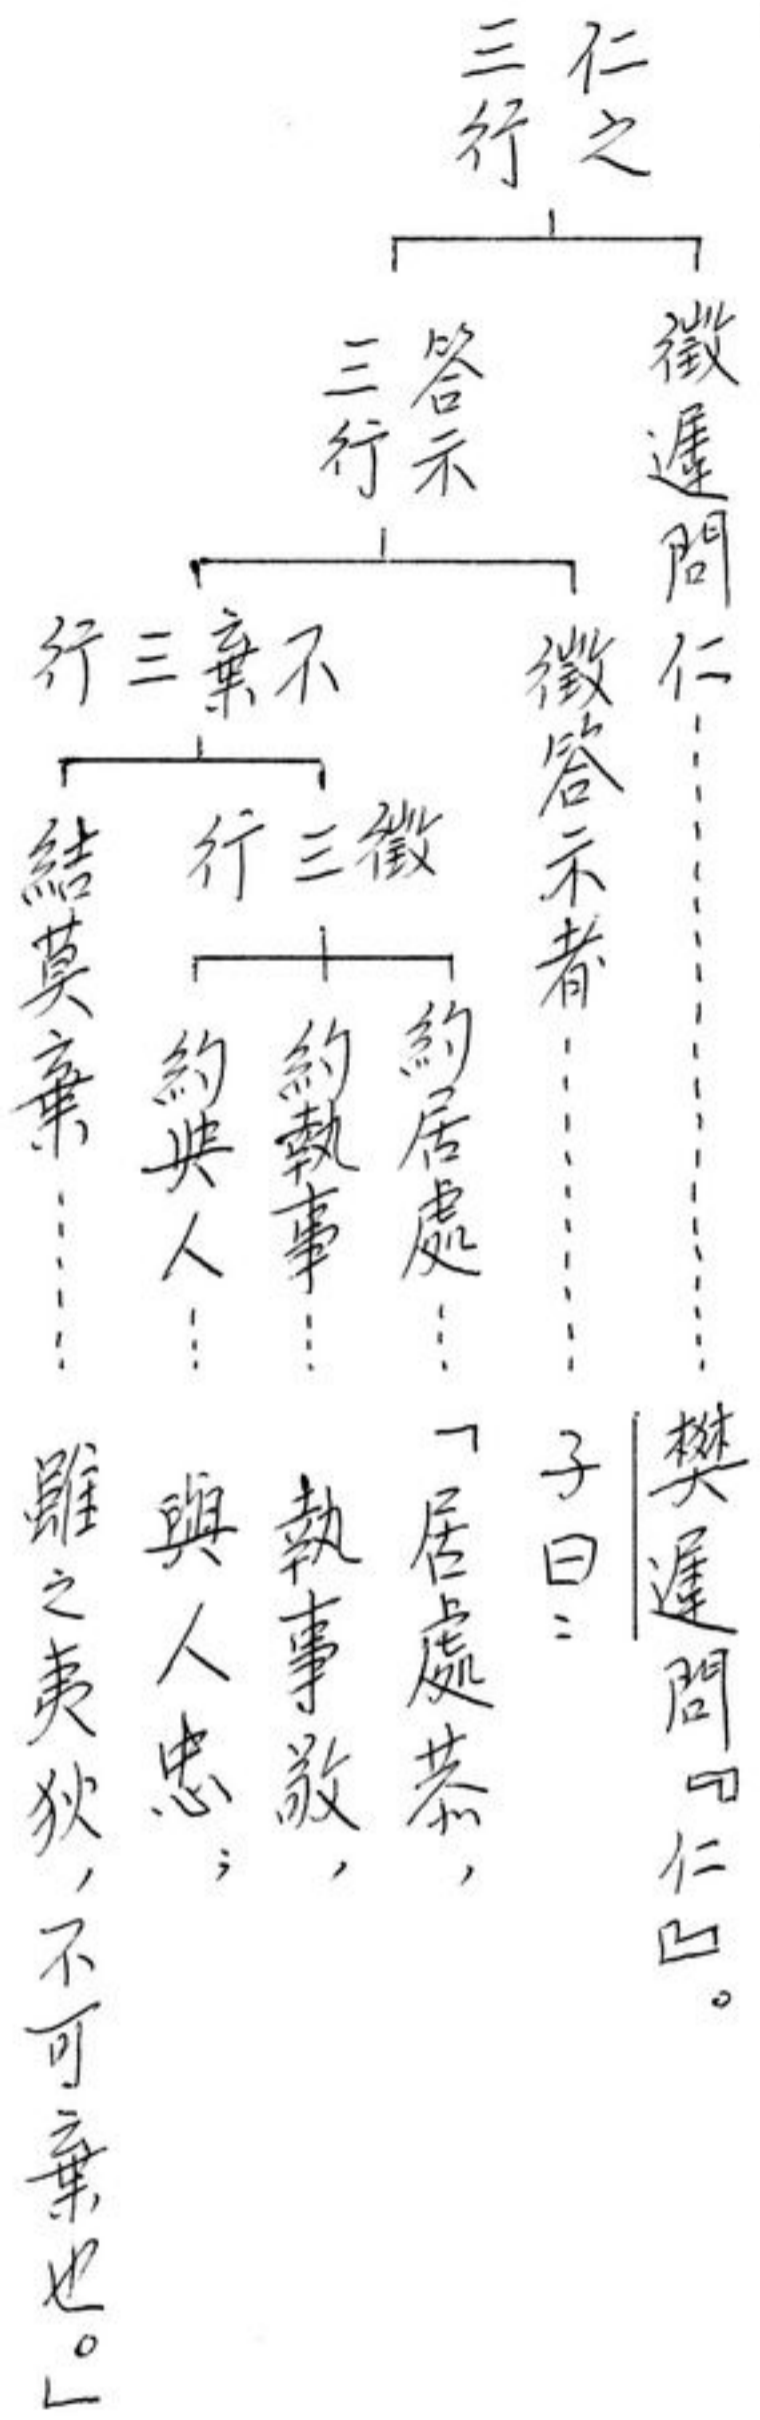 仁之
三行
徵遲問仁
樊遲問『仁』。
答示
三行
徵答示者
子曰：
不棄三行
徵三行
約居處
「居處恭，
約執事
執事敬，
約與人
與人忠；
結莫棄
雖之夷狄，不可棄也。」